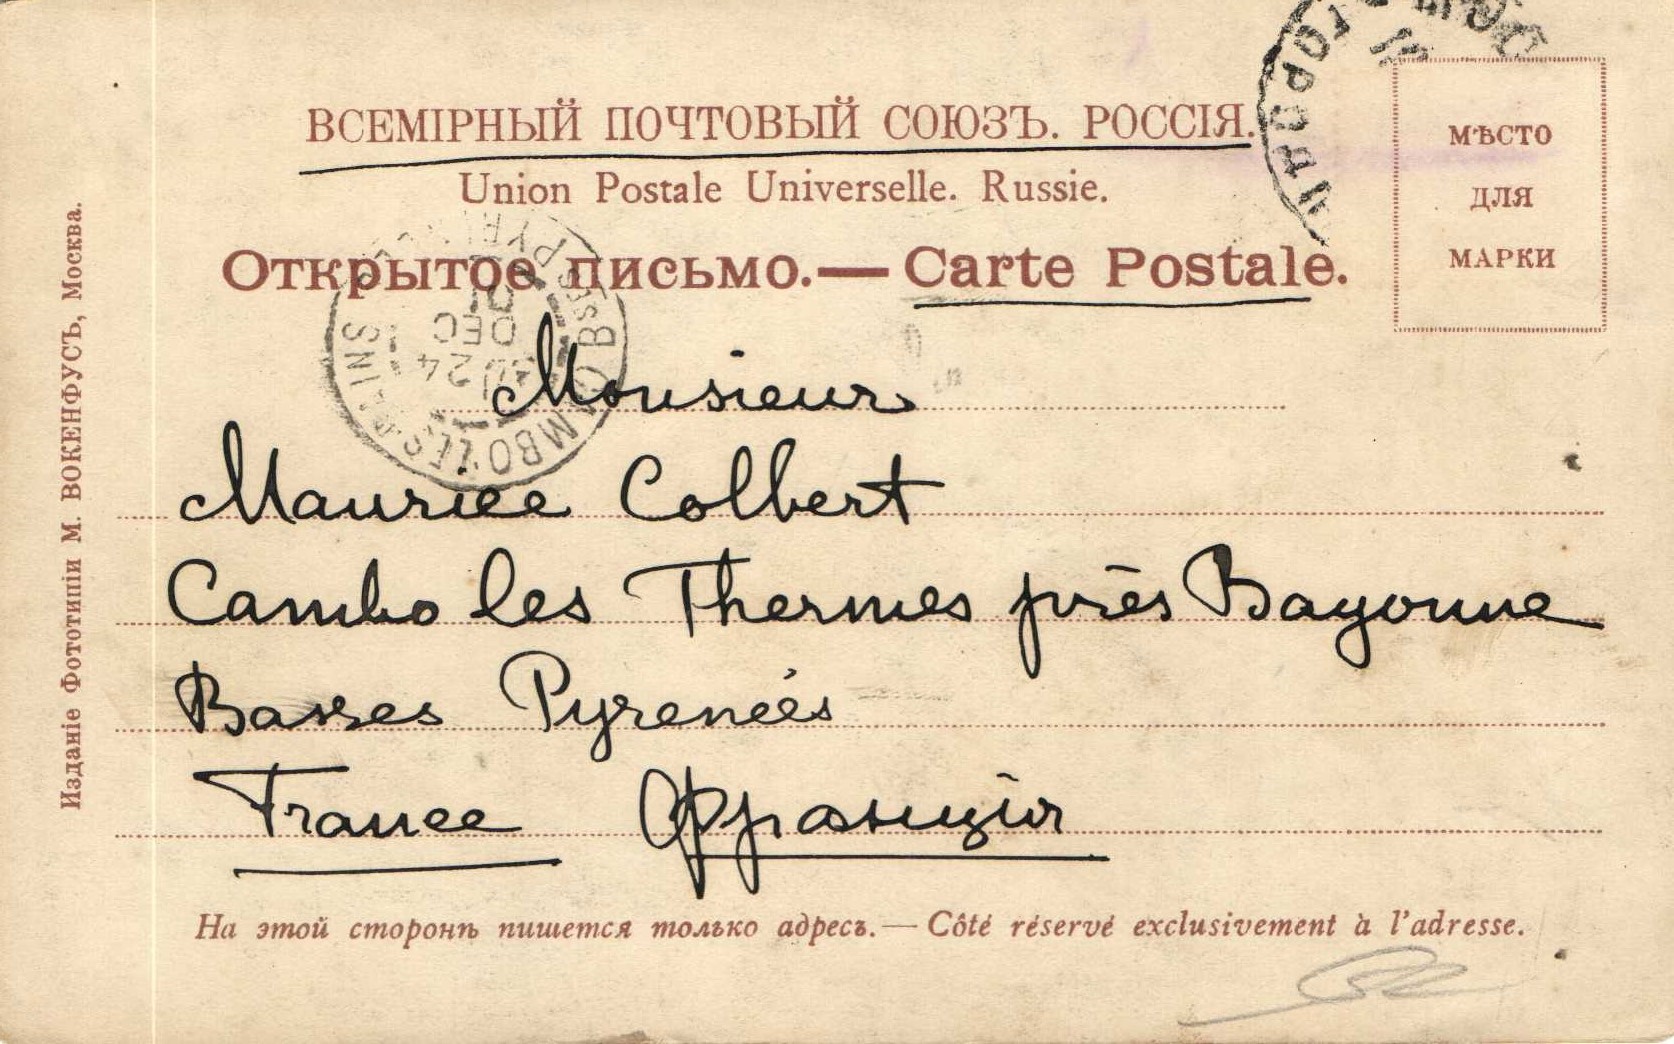 ВСЕМІРНЫЙ ПОЧТОВЫЙ СОЮЗЪ. РОССІЯ.
Union Postale Universelle. Russie.
Открытое письмо.—Carte Postale.
МѢСТО
ДЛЯ
МАРКИ
Monsieur
Maurice Colbert
Cambo les Thermes près Bayonne
Basses Pyrenées
France Франція
На этой сторонѣ пишется только адресъ.—Côté réservé exclusivement à l'adresse.
Изданіе Фототипіи М. ВОКЕНФУСЪ, Москва.
CAMBO-LES-BAINS
24
DEC